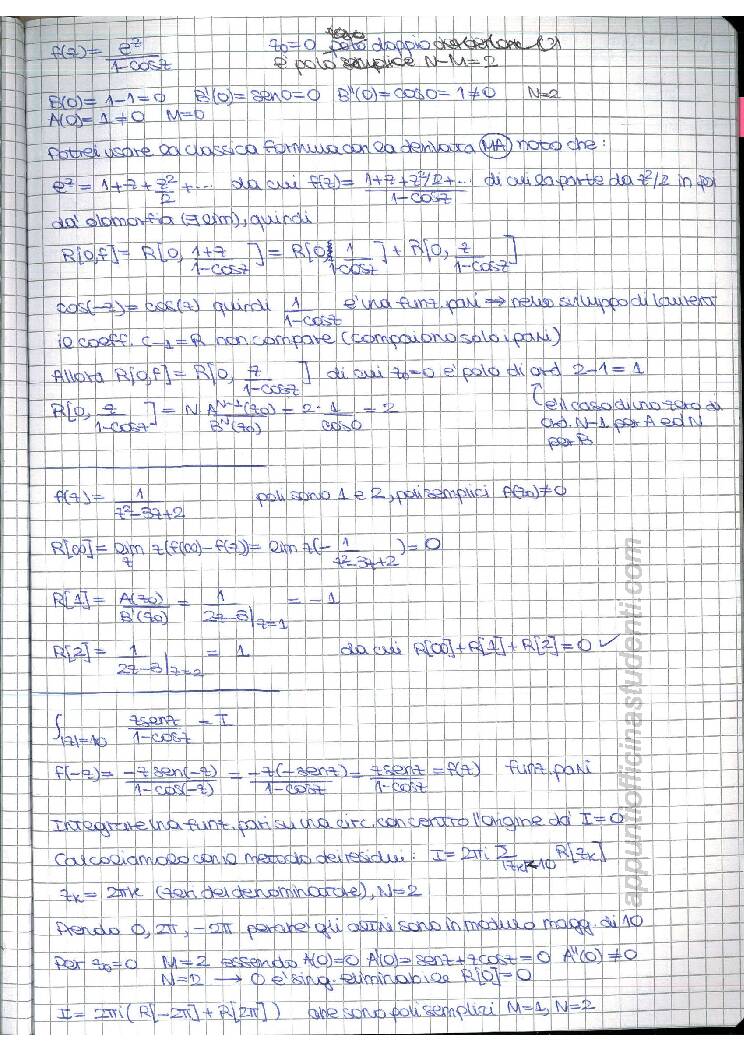 f(z) = e^z / (1-cosz)    z0=0 polo doppio
è polo semplice N-M=2
B(0)=1-1=0  B'(0)=sen0=0  B''(0)=cos0=1≠0  N=2
A(0)=1≠0  M=0
Potrei usare la classica formula con la derivata (MA) noto che:
e^z = 1+z+z²/2+... da cui f(z) = (1+z+z²/2+...)/(1-cosz) di cui la parte da z²/2 in poi
dà olomorfia (∃ lim), quindi
R[0,f] = R[0, (1+z)/(1-cosz)] = R[0, 1/(1-cosz)] + R[0, z/(1-cosz)]
cos(-z)=cos(z) quindi 1/(1-cosz) è una funz. pari ⇒ nello sviluppo di Laurent
il coeff. c-1=R non compare (compaiono solo i pari)
Allora R[0,f] = R[0, z/(1-cosz)] di cui z0=0 è polo di ord 2-1=1
R[0, z/(1-cosz)] = N A^(N-1)(z0)/B^N(z0) = 2·1/cos0 = 2
è il caso di uno zero di
ord. N-1 per A ed N
per B
f(z) = 1/(z²-3z+2)    poli sono 1 e 2, poli semplici A(z0)≠0
R[∞] = lim z z(f(∞)-f(z)) = lim z(-1/(z²-3z+2)) = 0
R[1] = A(z0)/B'(z0) = 1/(2z-3)|z=1 = -1
R[2] = 1/(2z-3)|z=2 = 1    da cui R[∞]+R[1]+R[2]=0 ✓
∫|z|=10 zsenz/(1-cosz) = I
f(-z) = -z sen(-z)/(1-cos(-z)) = -z(-senz)/(1-cosz) = zsenz/(1-cosz) = f(z)  funz. pari
Integrare una funz. pari su una circ. con centro l'origine dà I=0
Calcoliamolo con il metodo dei residui: I = 2πi Σ|zk|<10 R[zk]
zk = 2πk (zeri del denominatore), N=2
Prendo 0, 2π, -2π perché gli altri sono in modulo magg. di 10
Per z0=0  M=2 essendo A(0)=0 A'(0)=senz+zcosz=0 A''(0)≠0
N=2 → 0 è sing. eliminabile R[0]=0
I = 2πi(R[-2π]+R[2π])  che sono poli semplici M=1, N=2
appuntiofficinastudenti.com